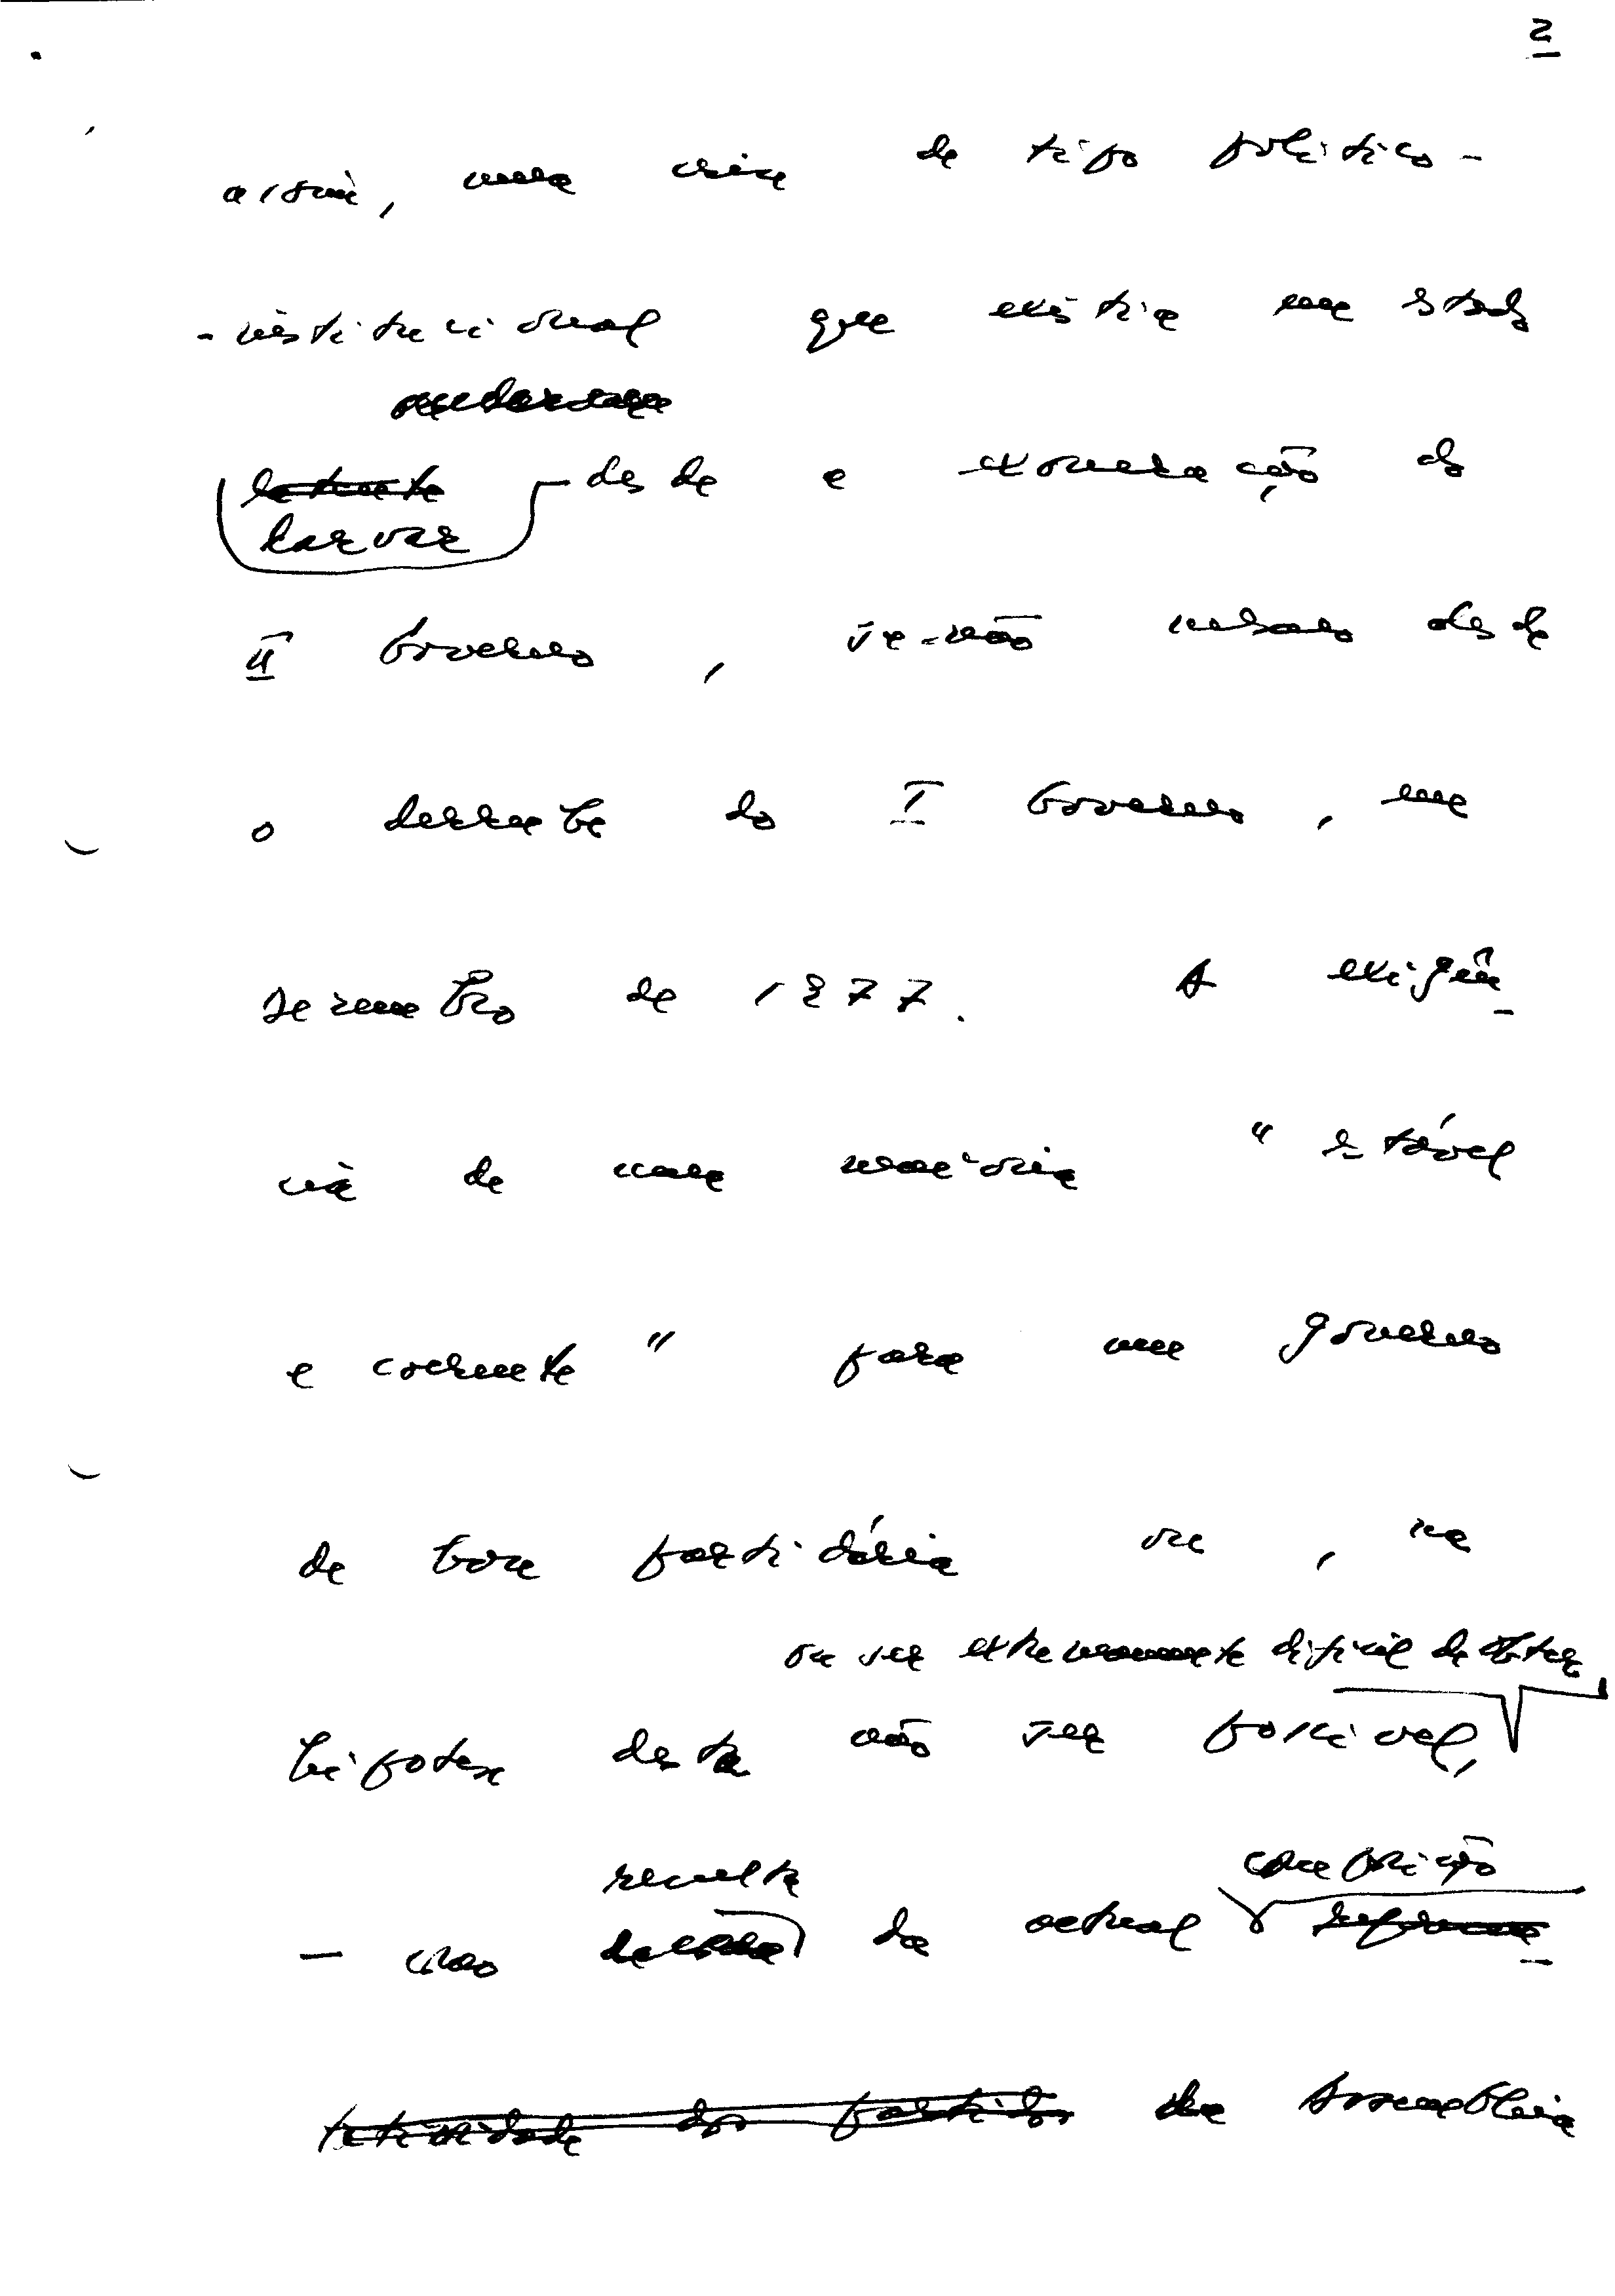 2
assim, uma crise de tipo político-
-institucional que existia em estado
larvar desde a exoneração do
II Governo, se-não mesmo desde
o derrube do I Governo, em
Dezembro de 1977. A exigên-
cia de uma maioria "estável
e coerente" para um governo
de base partidária ou, na
ou ser extremamente difícil de obter
hipótese desta não ser possível,
resulta composição
- não da actual
da Assembleia